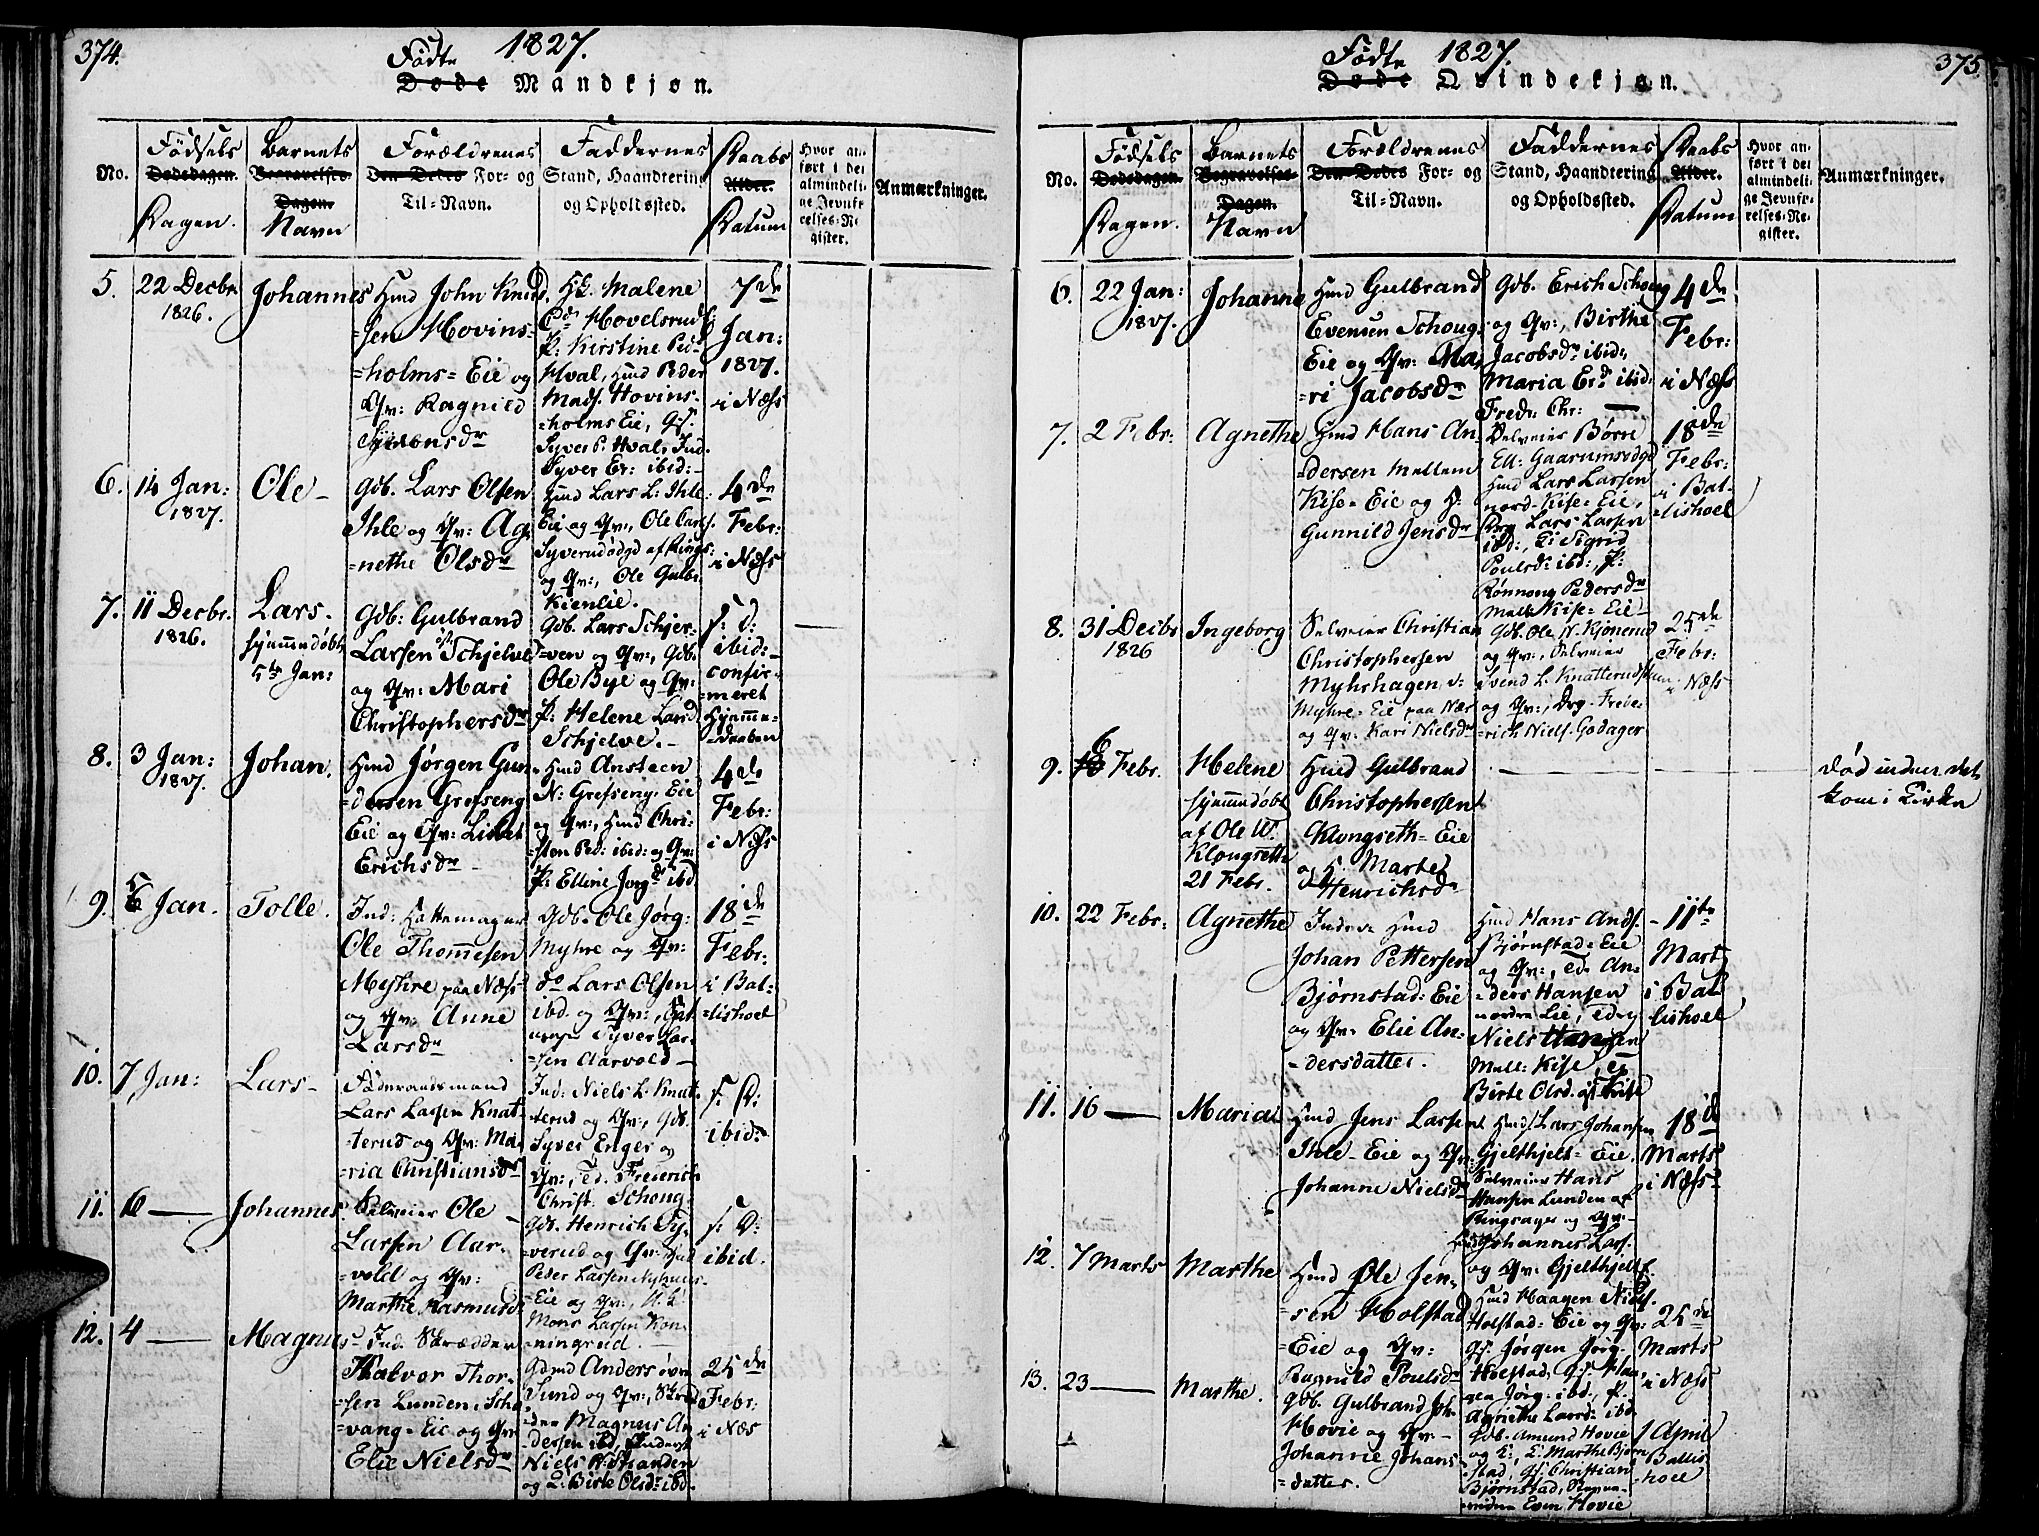 374.
Fødte 1827.
Døde Mandkjøn.
No.
Fødsels
Dødsdagen.
Dagen.
Barnets
Begravelses-
Dagen.
Navn
Forældrenes
Den Dødes For- og
Til-Navn.
Faddernes
Stand, Haandtering
og Opholdssted.
Daabs
Alder.
Datum
Hvor an-
ført i det
almindeli-
ge Jevnfø-
relses-Re-
gister.
Anmærkninger.
5.
22 Decbr.
1826.
Johannes
Hmd John Knud-
=sen Hovins-
=holms= Eie og
Qv: Ragnild
Syvensdr
Hk. Malene
Hovelsrud
P: Kirstine Ped.
Hval, Hmd Peder
Mads. Hovins-
=holms Eie,
Syver P. Hval, Ind.
Syver Er: ibid:
7de
Jan:
1827.
i Næss
6.
14 Jan:
1827.
Ole
Gdb. Lars Olsen
Ihle og Qv: Ag-
=nethe Olsdr
Hmd Lars L: Ihle
Eie og Qv:, Ole
og Qv:, Ole Gulbr.
Kienlie.
4de
Febr:
i Næss
7.
11 Decbr.
1826.
Lars.
hjemmedøbt
5te Jan:
Gdb: Gulbrand
Larsen Schjelve
og Qv: Mari
Christophersdr
Gdb. Lars Schjer-
=ven og Qv:, Gdb.
Ole Bye og Qv:
P: Helene Larsd
Schjelve.
s: d:
ibid:
confir-
=meret
Hjemme-
=daaben
8.
3 Jan:
1827.
Johan.
Hmd Jørgen Gun-
=dersen Grefseng
Eie og Qv: Lisbet
Erichsdr
Hmd Ansteen
N: Grefseng: Eie
og Qv:, Hmd Chri-
=sten Ped: ibid: og Qv:
P: Elline Jørgd ibd
4de
Febr:
i Næss
9.
6 Jan.
Tolle.
Ind: Hattemager
Ole Thommesen
Myhre paa Næss
og Qv: Anne
Larsdr
Gdb. Ole Jørg:
Myhre og Qv:
do Lars Olsen
ibd. og Qv:,
Syver Lar-
=sen Aarvold
18de
Febr:
i Bal-
=lishoel
10.
7 Jan:
Lars
Føderaadsmand
Lars Larsen Knat-
=terud og Qv: Ma-
=ria Christiansdr
Ind: Niels L. Knat-
=terud og Qv:, Gdb.
Syver Enger og
Qv:, Frederich
Christ. Schoug
s: D:
ibid:
11.
6
Johannes
Selveier Ole
Larsen Aar-
=vold og Qv:
Marthe Rasmusdr
Gdb. Henrich Sy-
=verud og Qv: Hmd
Peder Larsen Nyhuus-
=Eie og Qv:,
Mons Larsen Kon-
=ningrud.
s: D:
ibid.
12.
4
Magnus
Ind: Skrædder
Halvor Thor-
=sen Lunden, Scho-
=vang= Eie og Qv:
Elie Nielsdr
Gdmd Anders øvre
Sund og Qv:, Skræd-
=der Magnus An-
=dersen ibd,
Niels N: Stranden
og Birte Olsd: ibd.
25de
Febr:
i Næs
375.
Fødte 1827.
Døde Qvindekjøn.
No.
Fødsels
Dødsdagen.
Dagen.
Barnets
Begravelses-
Dagen.
Navn
Forældrenes
Den Dødes For- og
Til-Navn.
Faddernes
Stand, Haandtering
og Opholdssted.
Daabs
Alder.
Datum
Hvor an-
ført i det
almindeli-
ge Jevnfø-
relses-Re-
gister.
Anmærkninger.
6.
22 Jan:
1827.
Johanne
Hmd Gulbrand
Evensen Schoug-
Eie og Qv: Ma-
=ri Jacobsdr
Gdb. Erich Schoug
og Qv:, Birthe
Jacobsdr ibid:,
Maria Erd: ibid:
Fredr: Chr:
4de
Febr:
i Næss
7.
2 Febr:
Agnethe
Hmd Hans An-
=dersen Mellem
Kise= Eie og H:
Gunnild Jensdr
Selveier Børre
Hmd Lars Larsen
nord-Kise= Eie,
Lars Larsen
ibd:, Sigrid
Poulsd: ibd:, P:
Rønnoug Pedersdr
Mell. Kise= Eie
18de
Febr:
i Bal-
=lishoel
8.
31 Decbr
1826
Ingeborg
Selveier Christian
Christophersen
Myhrhagen
Myhre= Eie paa Næs
og Qv: Kari Nielsdr
Gdb. Ole N. Kjønerud
og Qv:, Selveier
Svend L. Knatterudstuen
og Qv:, Drg. Frede-
=rich Niels. Godager
25de
Febr:
i Næss
9.
6 Febr.
Helene
hjemmedøbt
af Ole W.
Klongseth
21 Febr.
Hmd Gulbrand
Christophersen
Klongseth= Eie
og H: Marthe
Henrichsdr
død inden det
kom i Kirken
10.
22 Febr:
Agnethe
Inderst Hmd
Johan Pettersen
Bjørnstad: Eie
og Qv: Elie An-
=dersdatter.
Hmd Hans Ands.
Bjørnstad= Eie
og Qv:, An-
=ders Hansen
nordre Lie,
Niels Hansen
Mell: Kise,
Birte Olsd. af Kise
11te
Marts
i Bal-
lishoel
11.
16
Maria
Hmd Jens Larsen
Ihle- Eie og Qv:
Johanne Nielsdr
Hmd Lars Johansen
Gjelthjelt= Eie.
Selveier Hans
Hansen Lunden af
Ringsager og Qv:
Johannes Lars.
og Qv: Gjelthjelt.
18de
Marts
i Næss
12.
7 Marts
Marthe
Hmd Ole Jen-
=sen Holstad
=Eie og Qv:
Ragnild Poulsdr
Hmd Haagen Niels.
Holstad= Eie og Qv:
Jørgen Jørg.
Holstad, Haa-
gen Jørg. ibd., P.
Agnethe Larsd: ibd.
25de
Marts
i Næss
13.
23
Marthe.
Gdb. Gulbrand Joh.
Hovie og Qv:
Johanne Johans-
=datter.
Gdb. Amund Hovie
og Marthe Bjørn-
=stad, Christian
Bjørnstad,
Even Hovie
1 April
Ballis-
=hoel